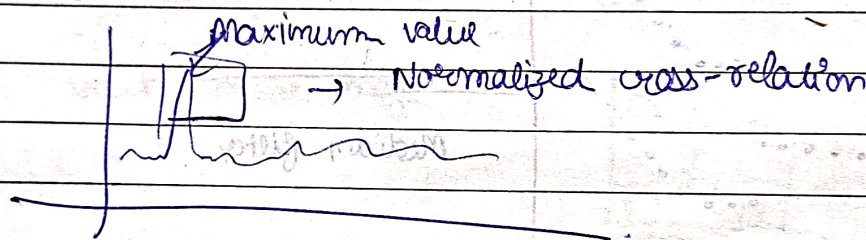 Maximum value
→ Normalized cross-relation